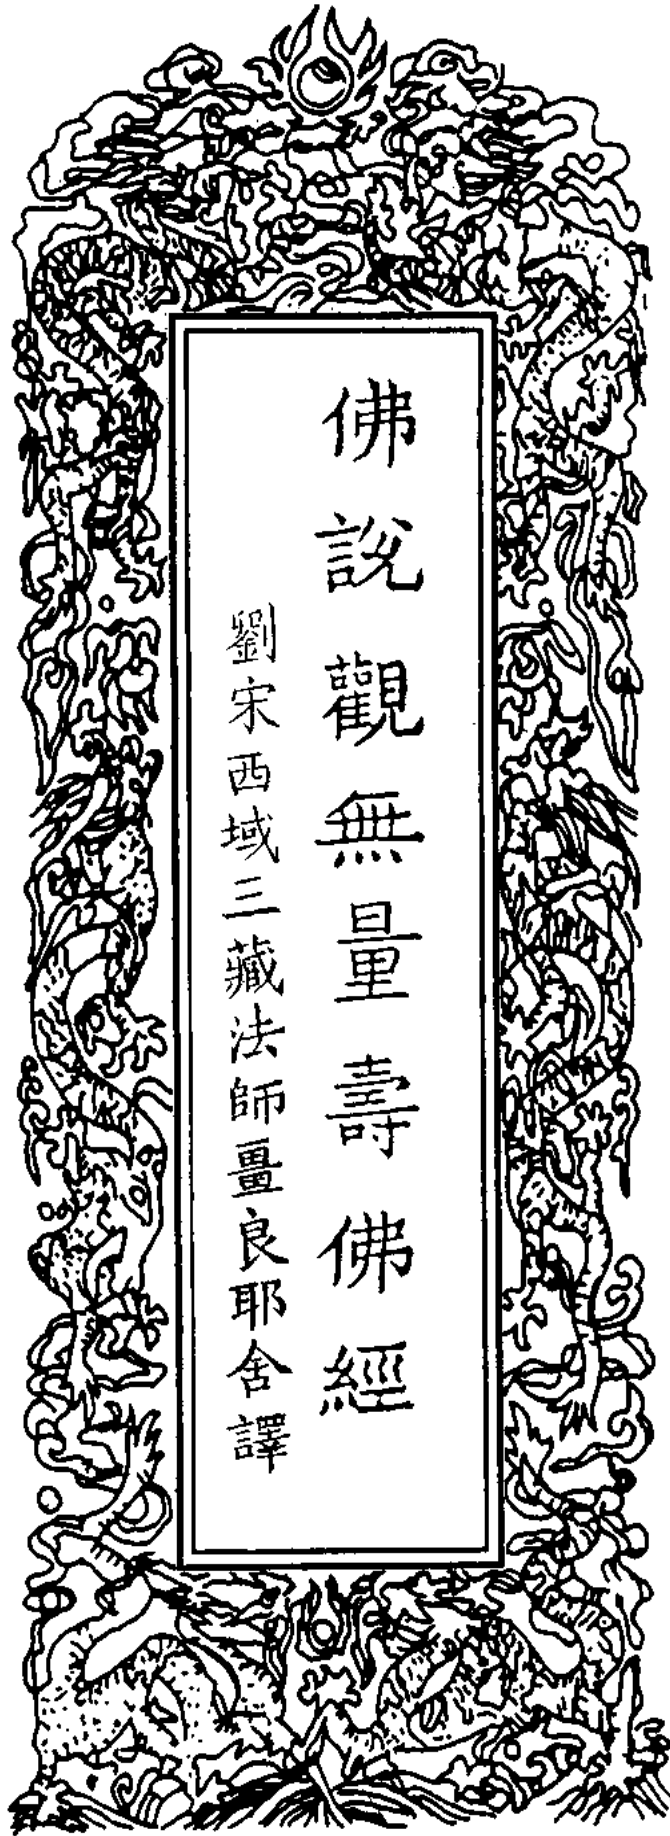 佛說觀無量壽佛經
劉宋西域三藏法師畺良耶舍譯